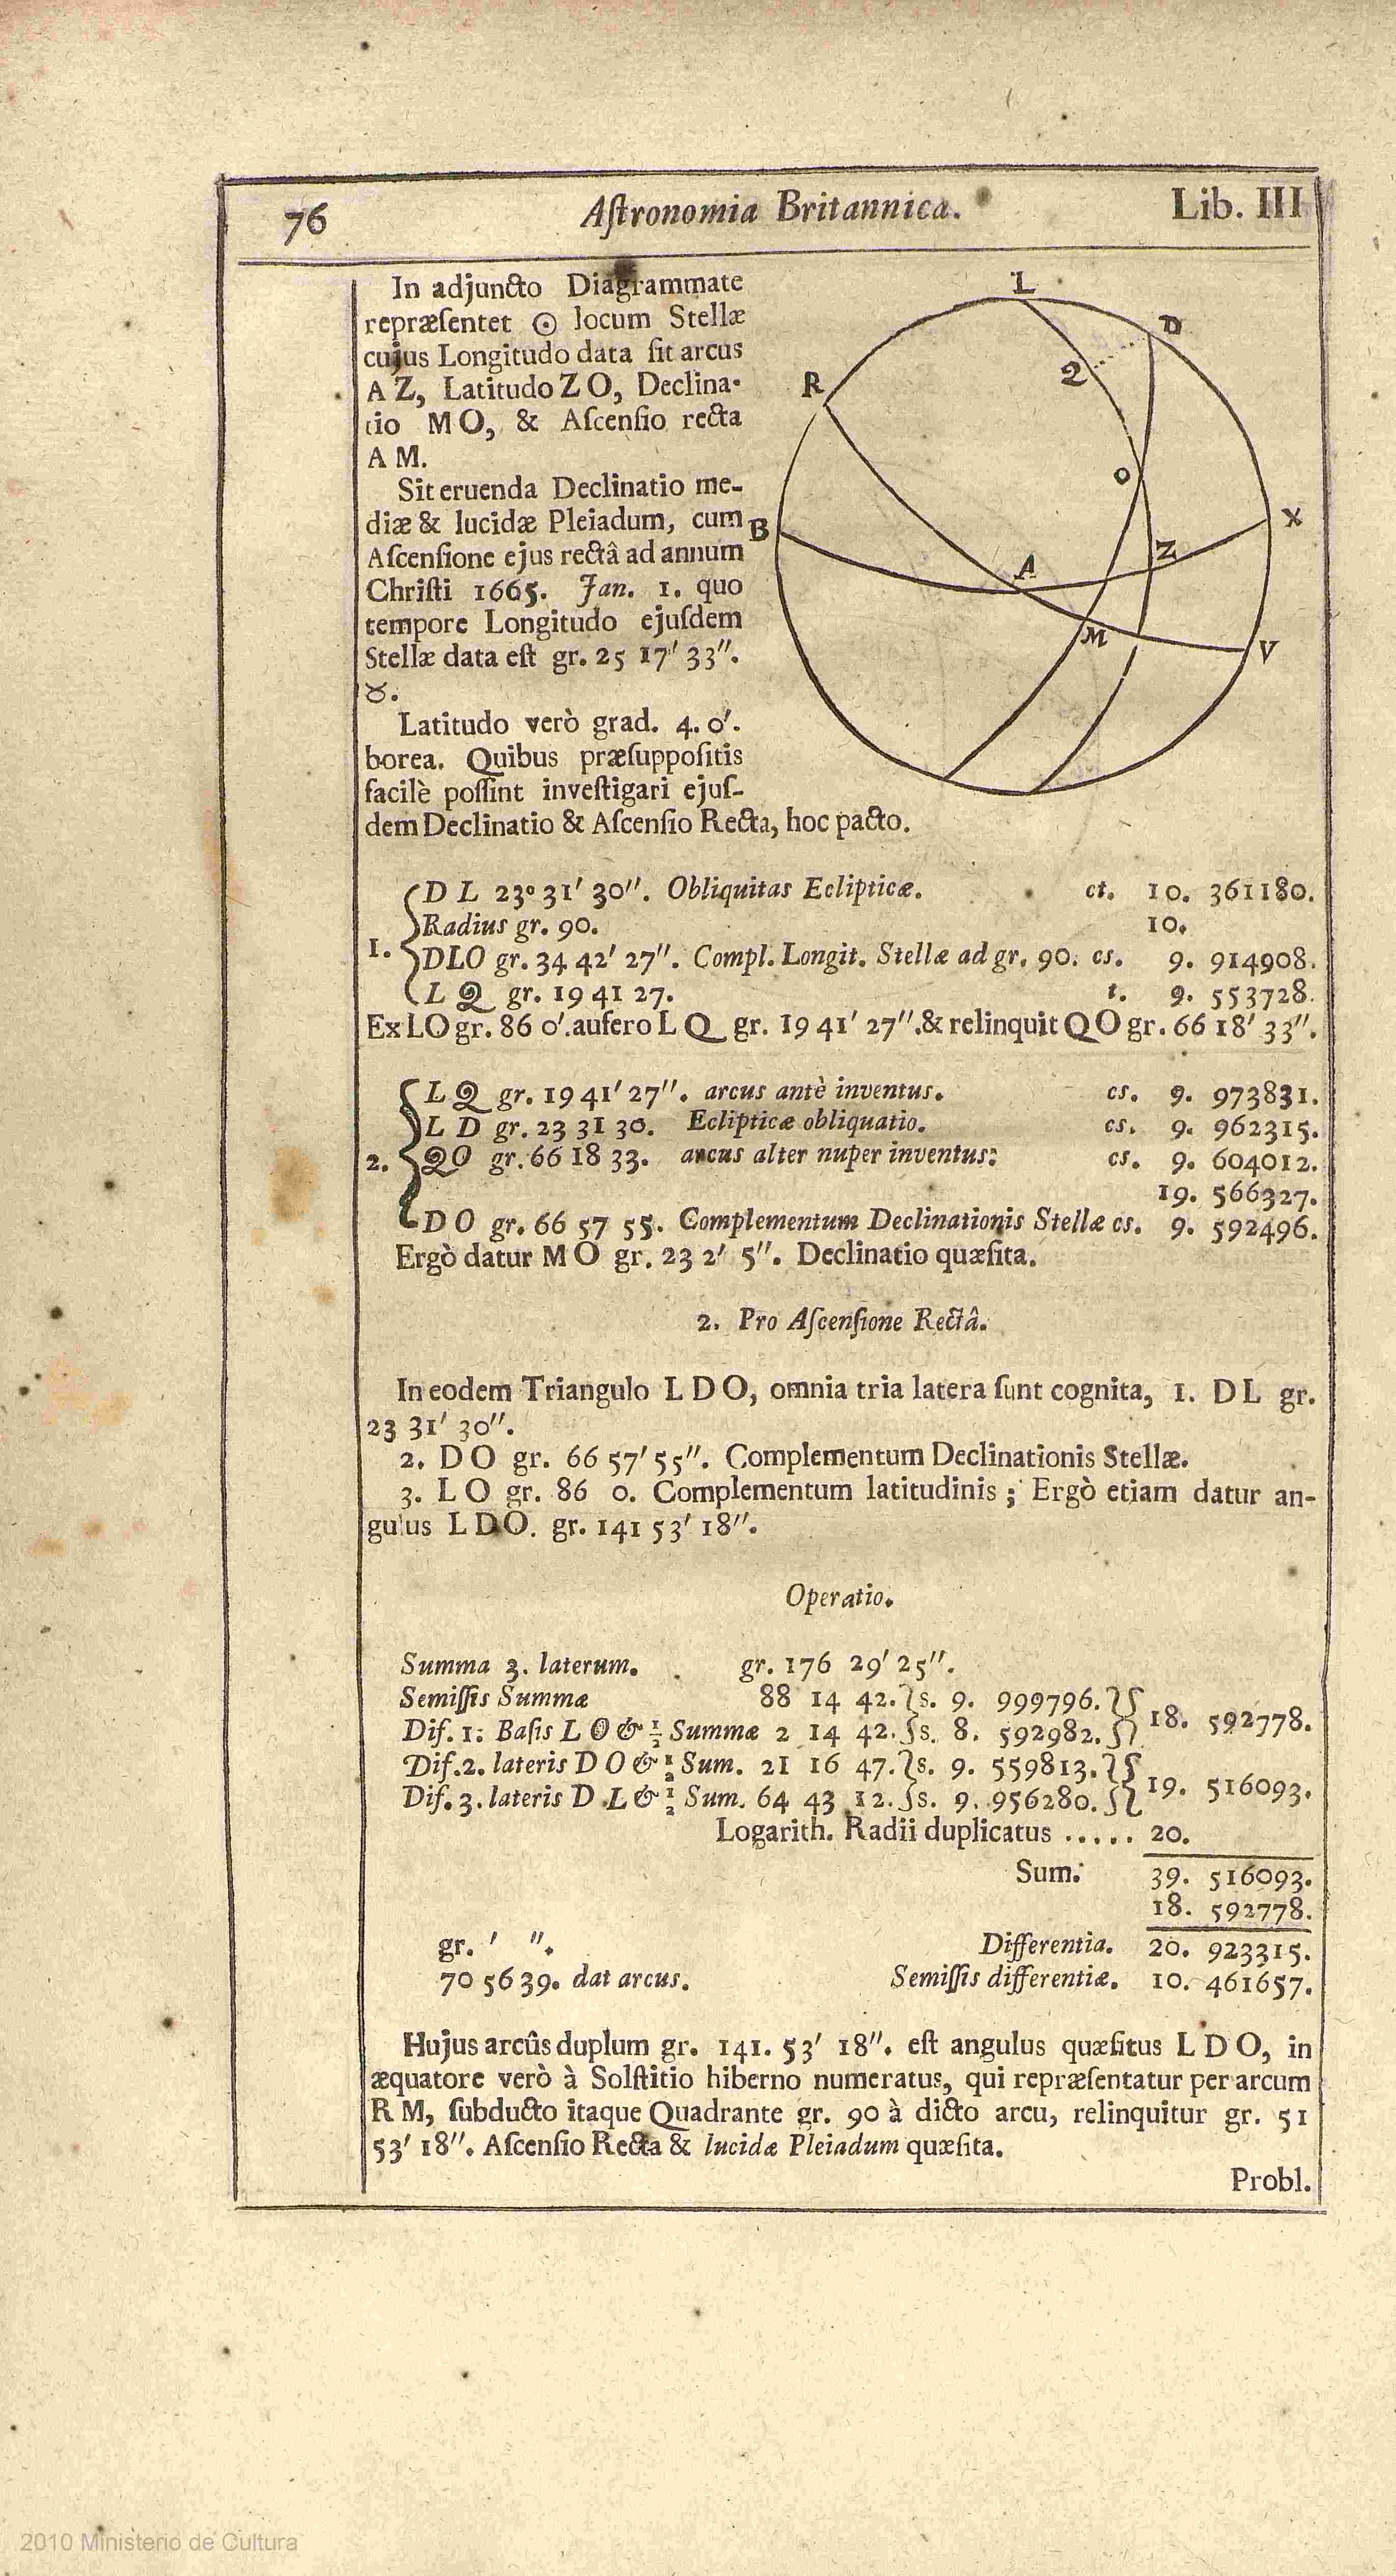 76
Aſtronomia Britannica.
Lib. III
In adjuncto Diagrammate
repræſentet ☉ locum Stellæ
cujus Longitudo data ſit arcus
A Z, Latitudo Z O, Declina-
tio M O, & Aſcenſio recta
A M.
Sit eruenda Declinatio me-
diæ & lucidæ Pleiadum, cum
Aſcenſione ejus rectâ ad annum
Chriſti 1665. Jan. 1. quo
tempore Longitudo ejuſdem
Stellæ data eſt gr. 25 17′ 33″.
♉.
Latitudo verò grad. 4. 0′.
borea. Quibus præſuppoſitis
facilè poſſint inveſtigari ejuſ-
dem Declinatio & Aſcenſio Recta, hoc pacto.
L
D
2
R
O
B
X
Z
A
M
V
D L 23° 31′ 30″. Obliquitas Eclipticæ. ct. 10. 361180.
Radius gr. 90. 10.
1. DLO gr. 34 42′ 27″. Compl. Longit. Stellæ ad gr. 90. cs. 9. 914908.
L Q gr. 19 41 27. t. 9. 553728.
Ex LO gr. 86 0′. aufero L Q gr. 19 41′ 27″. & relinquit QO gr. 66 18′ 33″.
L Q gr. 19 41′ 27″. arcus antè inventus. cs. 9. 973831.
L D gr. 23 31 30. Eclipticæ obliquatio. cs. 9. 962315.
2. QO gr. 66 18 33. arcus alter nuper inventus: cs. 9. 604012.
19. 566327.
D O gr. 66 57 55. Complementum Declinationis Stellæ cs. 9. 592496.
Ergò datur M O gr. 23 2′ 5″. Declinatio quæſita.
2. Pro Aſcenſione Rectâ.
In eodem Triangulo L D O, omnia tria latera ſunt cognita, 1. D L gr.
23 31′ 30″.
2. D O gr. 66 57′ 55″. Complementum Declinationis Stellæ.
3. L O gr. 86 0. Complementum latitudinis; Ergò etiam datur an-
gulus L D O. gr. 141 53′ 18″.
Operatio.
Summa 3. laterum. gr. 176 29′ 25″.
Semiſſis Summæ 88 14 42. s. 9. 999796.
18. 592778.
Dif. 1: Baſis L O & ½ Summæ 2 14 42. s. 8. 592982.
Dif. 2. lateris D O & ½ Sum. 21 16 47. s. 9. 559813.
19. 516093.
Dif. 3. lateris D L & ½ Sum. 64 43 12. s. 9. 956280.
Logarith. Radii duplicatus ..... 20.
Sum. 39. 516093.
18. 592778.
gr. ′ ″. Differentia. 20. 923315.
70 56 39. dat arcus. Semiſſis differentiæ. 10. 461657.
Hujus arcûs duplum gr. 141. 53′ 18″. eſt angulus quæſitus L D O, in
æquatore verò à Solſtitio hiberno numeratus, qui repræſentatur per arcum
R M, ſubducto itaque Quadrante gr. 90 à dicto arcu, relinquitur gr. 51
53′ 18″. Aſcenſio Recta & lucidæ Pleiadum quæſita.
Probl.
2010 Ministerio de Cultura